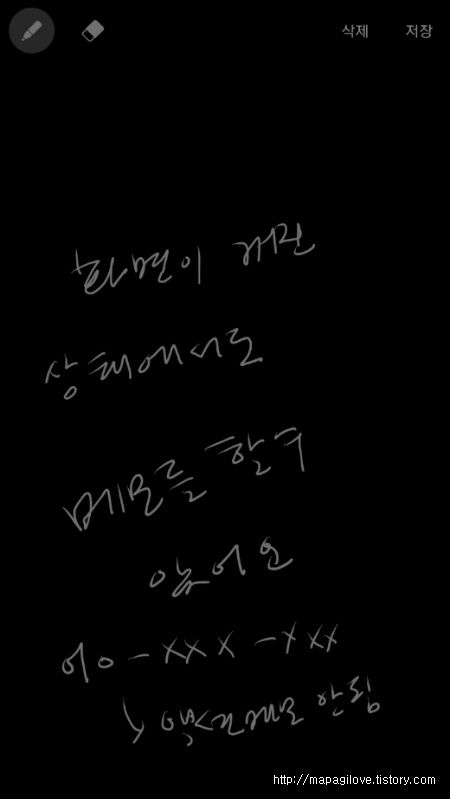 삭제 저장
화면이 꺼진
상태에서도
메모를 할 수
있어요
010-xxx-xxx
안됨
http://mapagilove.tistory.com